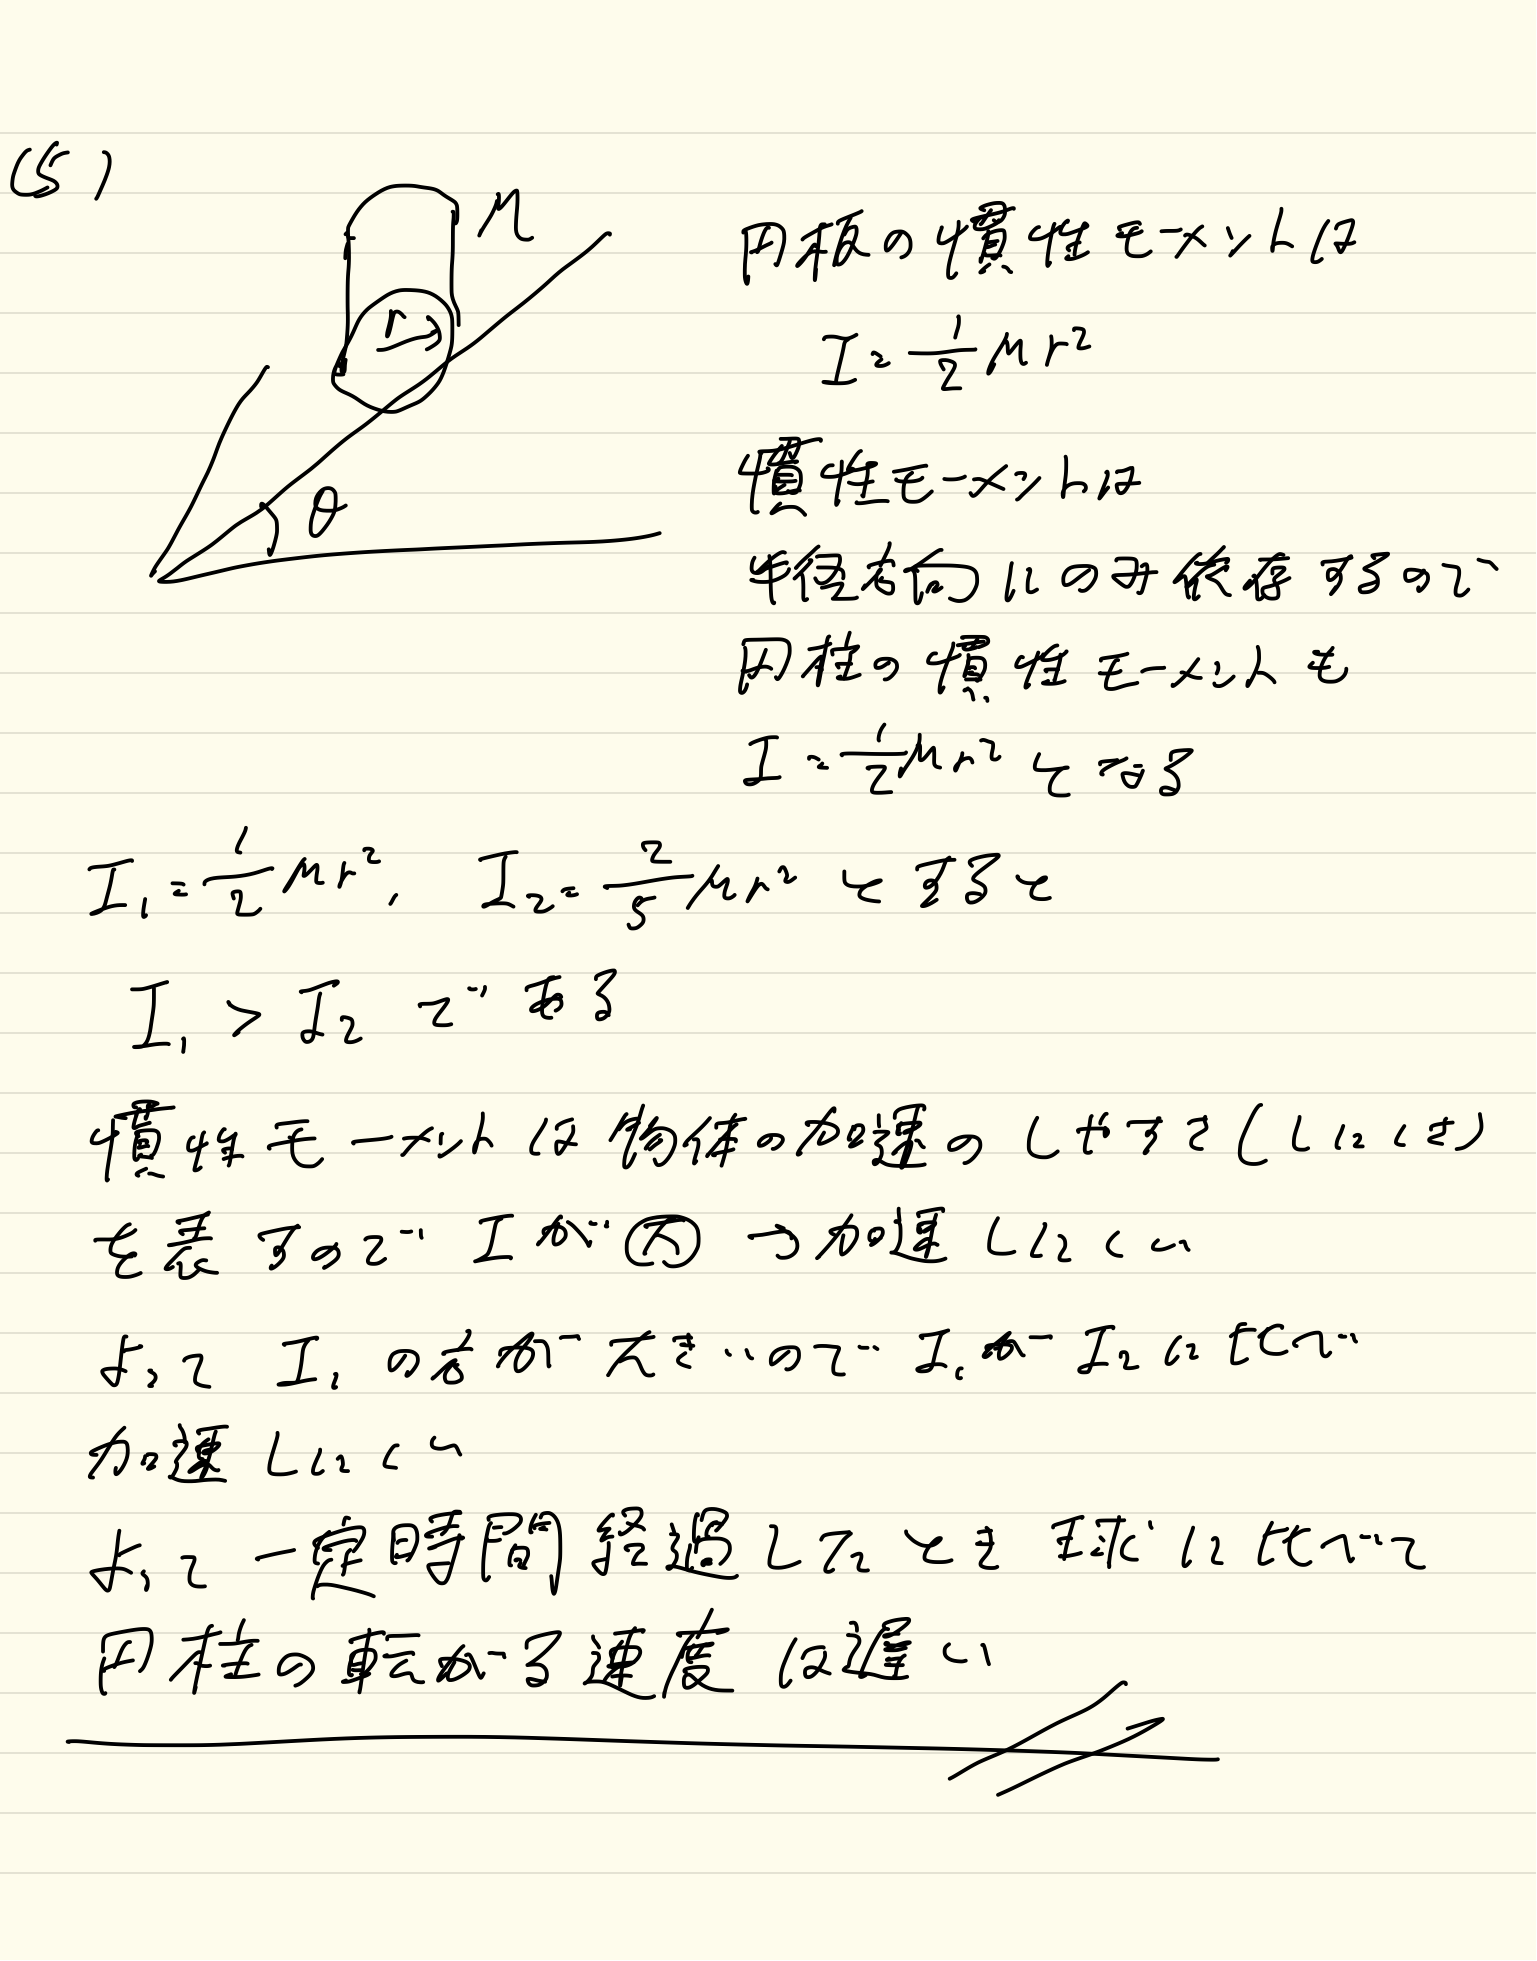 (5)
M
r
θ
円板の慣性モーメントは
I = 1/2 Mr²
慣性モーメントは
半径方向にのみ依存するので
円柱の慣性モーメントも
I = 1/2 Mr² となる
I₁ = 1/2 Mr², I₂ = 2/5 Mr² とすると
I₁ > I₂ である
慣性モーメントは物体の加速のしやすさ(しにくさ)
を表すので Iが大 → 加速しにくい
よって I₁ の方が大きいので I₁が I₂ に比べ
加速しにくい
よって一定時間経過したとき球に比べて
円柱の転がる速度は遅い